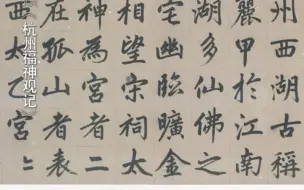 州西湖古稱
麗甲於江南
湖多仙佛之
宅幽臨曠金
相望崇祠太
神為宮者二
在孤山者表
西太乙宮〻
杭州福神观记